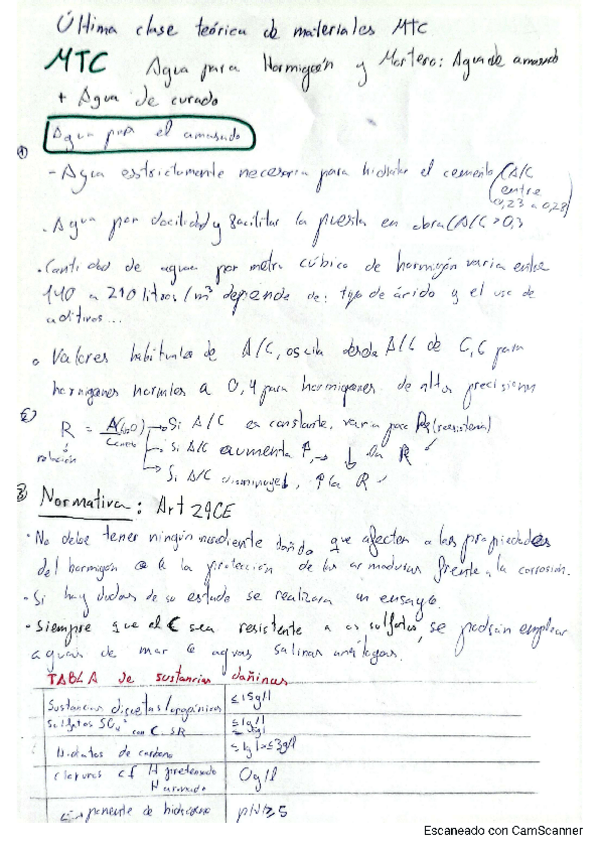 Última clase teórica de materiales MTC
MTC Agua para Hormigón y Mortero: Agua de amasado
+ Agua de curado
Agua para el amasado
①
- Agua estrictamente necesaria para hidratar el cemento (A/C
entre
0,23 a 0,28)
. Agua por docilidad y facilitar la puesta en obra (A/C > 0,3
. Cantidad de agua por metro cúbico de hormigón varia entre
140 a 210 litros/m³ depende de: tipo de árido y el uso de
aditivos...
o Valores habituales de A/C, oscila desde A/C de 0,6 para
hormigones normales a 0,4 para hormigones de altas
②
R = → Si A/C es constante, (resistencia)
relación
Cemento
→ Si A/C aumenta ↑, → ↓ la R ✓
→ Si A/C disminuye ↓, ↑ la R ✓
3) Normativa: Art 29 CE
· No debe tener ningún dañido que afecten a las propiedades
del hormigón o a la protección de las armaduras frente a la corrosión.
· Si hay dudas de su estado se realizara un ensayo.
· Siempre que el C sea resistente a os sulfatos, se podrán emplear
aguas de mar o aguas salinas análogas.
TABLA de sustancias dañinas
Sustancias disueltas/orgánicas ≤ 15g/l
Sulfatos SO₄ ≤ 1g/l
con C. SR ≤ 5g/l
Hidratos de carbono
Cloruros Cl H pretensado 0g/l
H armado
ponente de hidrógeno pH ≥ 5
Escaneado con CamScanner